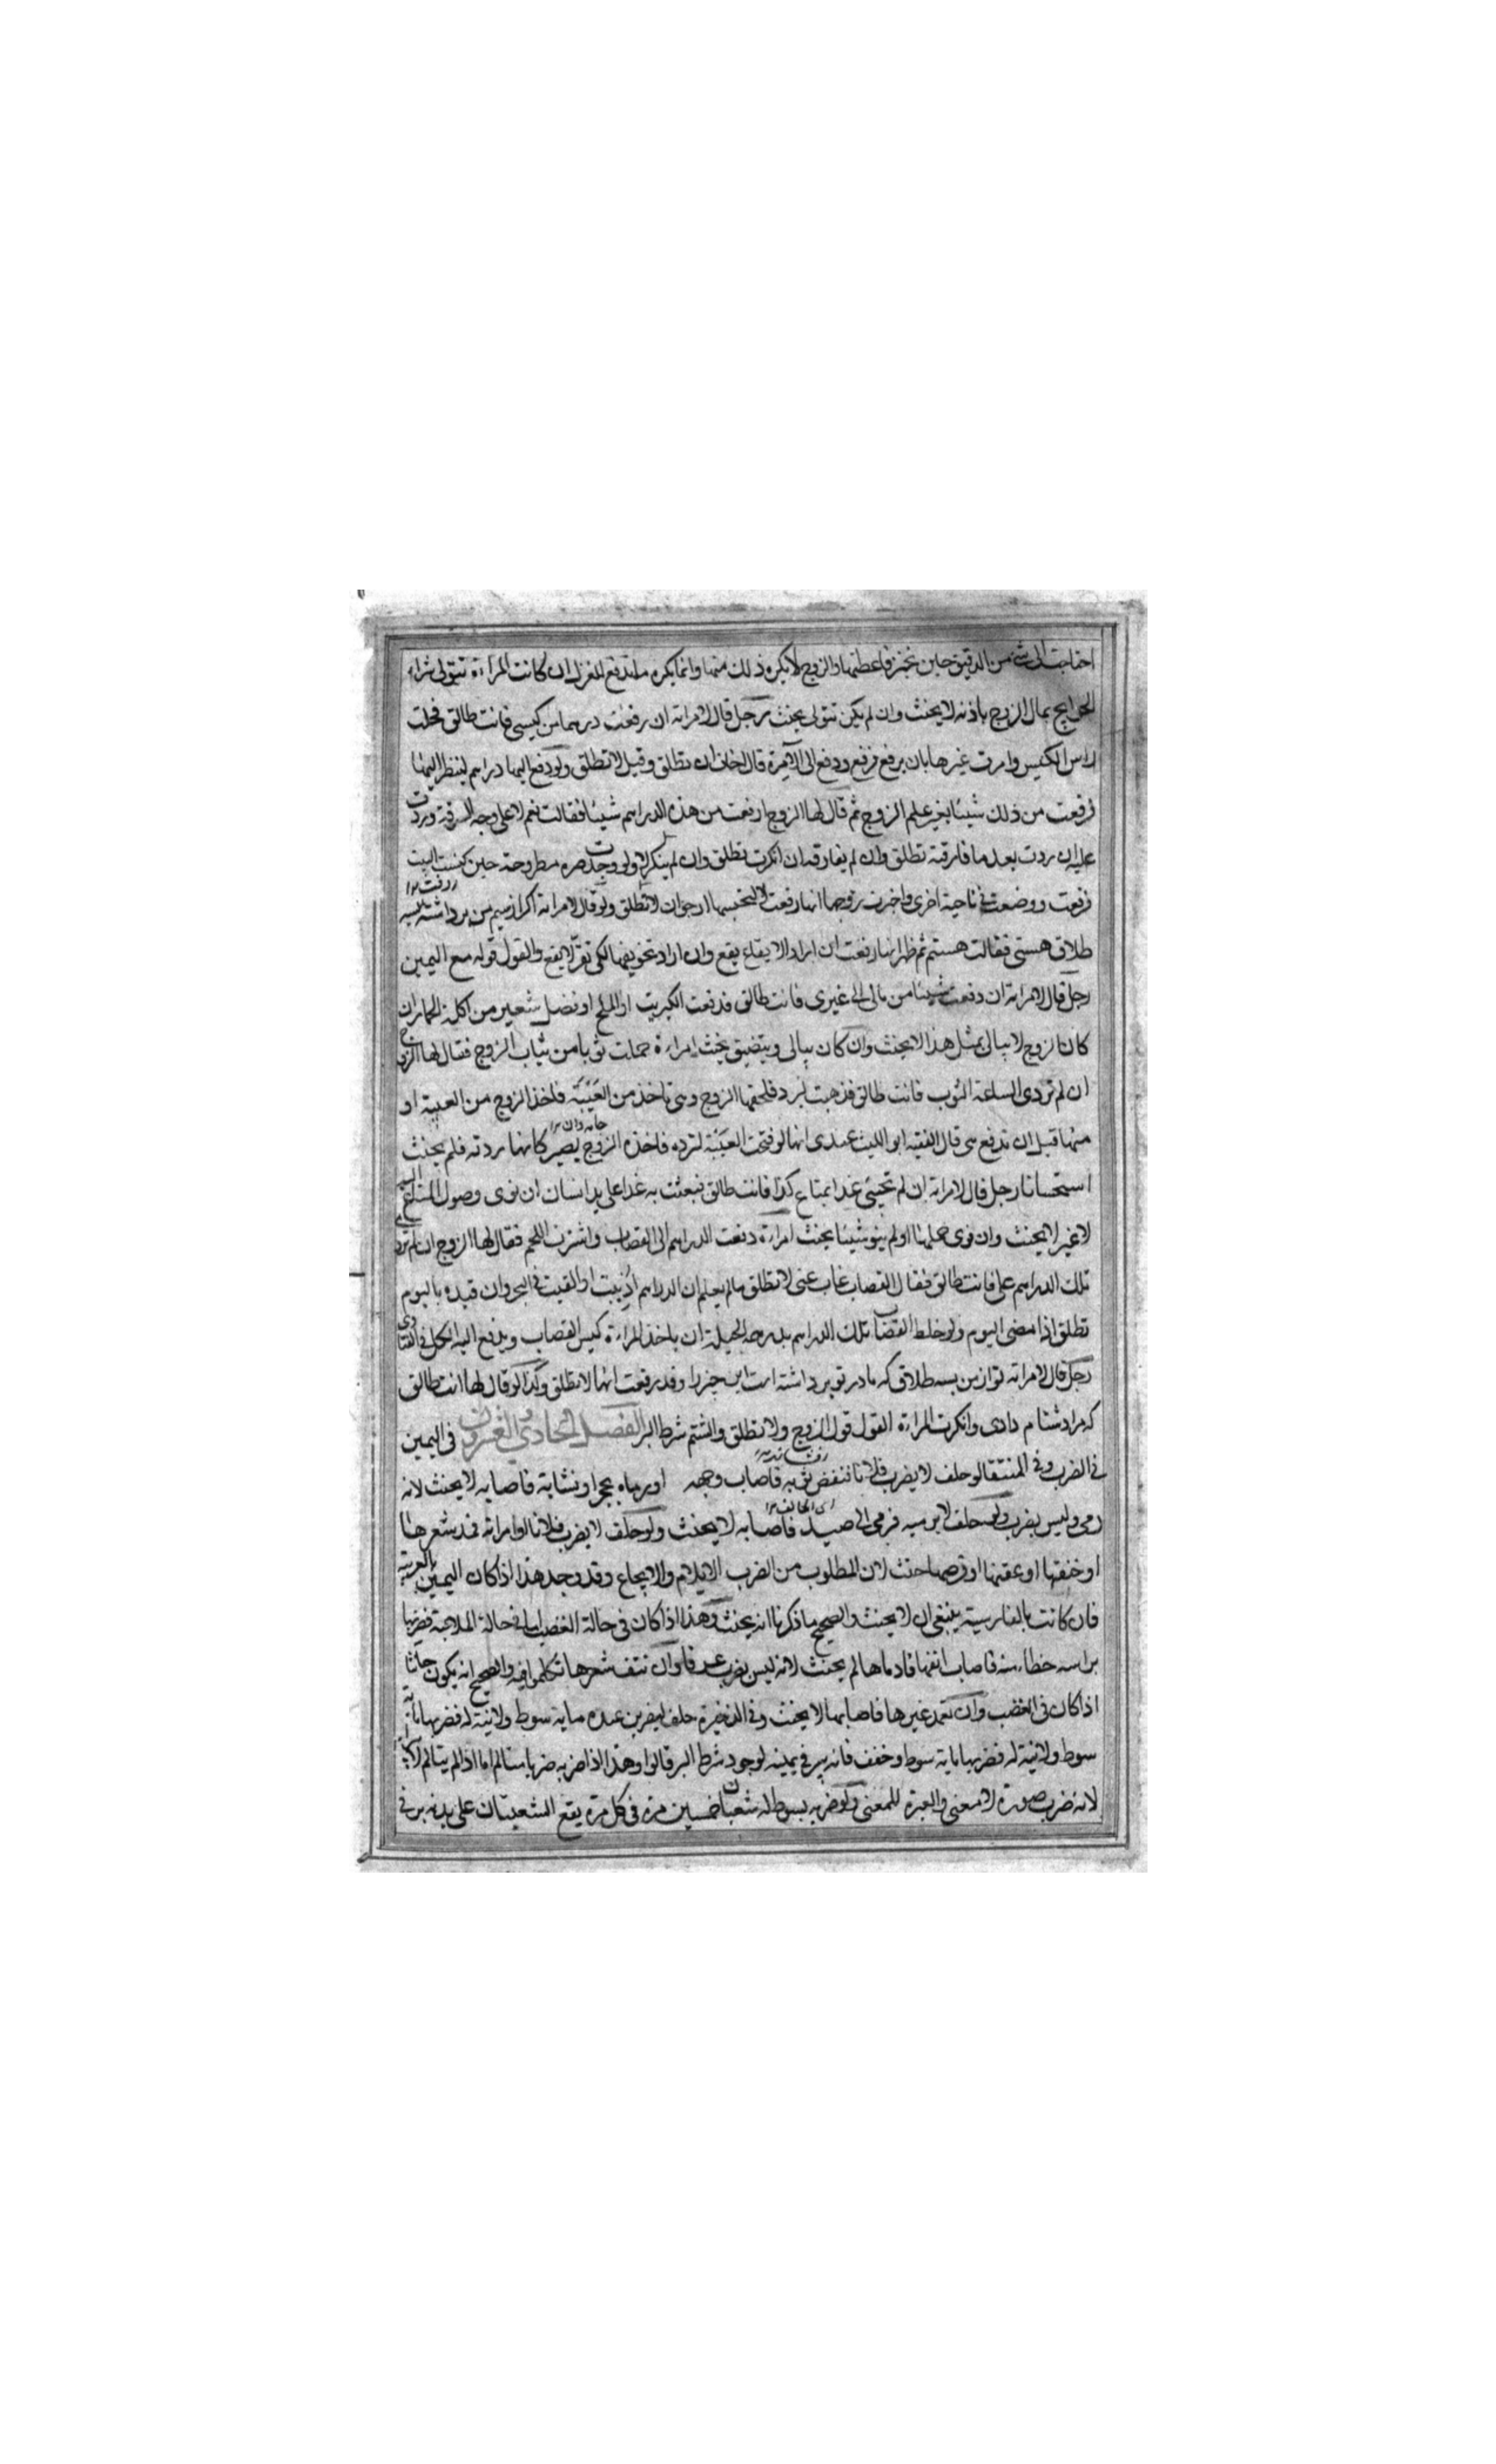 احتاجت الى شئ من الدقيق حين تخبز فاعطتها والزوج لا يكره ذلك منها وانما يكره ما تدفع للغزل ان كانت المراءة تتولى شراء
الحوايج بمال الزوج باذنه لا يحنث وان لم يكن تتولى يحنث رجل قال لامراته ان رفعت درهما من كيسى فانت طالق فحلت
راس الكيس وامرت غيرها بان يرفع فرفع ودفع الى الآمرة قال اخاف ان تطلق وقيل لا تطلق ولو دفع اليها دراهم لينظر اليها
فرفعت من ذلك شيئا بغير علم الزوج ثم قال لها الزوج ارفعت من هذه الدراهم شيئا فقالت نعم لا على وجه السرقة وردت
عليه ان ردت بعد ما فارقته تطلق وان لم يفارقه ان انكرت تطلق وان لم ينكر لا ولو وجدت صره مطروحة حين كنست البيت
فرفعت ووضعت فى ناحية اخرى واخبرت زوجها انها رفعت لا لتحبسها ارجو ان لا تطلق ولو قال لامراته اكر از سيم من برداشته بسه
طلاق هستى فقالت هستم ثم ظهر انها رفعت ان اراد الايقاع يقع وان اراد تخويفها لكى تقر لا يقع والقول قوله مع اليمين
رجل قال لامراته ان دفعت شيئا من مالى الى غيرى فانت طالق فدفعت الكبريت او الملح او فضل شعير من اكلة الحمار ان
كان الزوج لا يبالى بمثل هذا لا يحنث وان كان يبالى ويتضيق يحنث امراءة حملت ثوبا من ثياب الزوج فقال لها الزوج
ان لم تردى الساعة الثوب فانت طالق فذهبت لترد فلحقها الزوج وهى تاخذ من العيبة فاخذ الزوج من العيبة او
منها قبل ان تدفع هى قال الفقيه ابو الليث عندى انها لو فتحت العيبة لترده فاخذه الزوج يصير كانها ردته فلم يحنث
استحسانا رجل قال لامراته ان لم تجيئى غدا بمتاع كذا فانت طالق فبعثت به غدا على يد انسان ان نوى وصول المتاع اليه
لا غير لا يحنث وان نوى حملها او لم ينو شيئا يحنث امراءة دفعت الدراهم الى القصاب واشترت اللحم فقال لها الزوج ان لم تردى
تلك الدراهم على فانت طالق فقال القصاب غاب عنى لا تطلق ما لم يعلم ان الدراهم اذيبت او القيت فى البحر وان قيده باليوم
تطلق اذا مضى اليوم ولو خلط القصاب تلك الدراهم بدراهمه الحيلة ان ياخذ المراءة كيس القصاب ويدفع اليه الكل فى الفتاوى
رجل قال لامراته تو از من بسه طلاق كه مادر تو برداشته است اين چيز را وقد رفعت انها لا تطلق وكذا لو قال لها انت طالق
كه مرا دشنام دادى وانكرت المراءة القول قول الزوج ولا تطلق والشتم شرط البر الفصل الحادى والعشرون فى اليمين
فى الضرب وفى المنتقا لو حلف لا يضرب فلانا فنفض ثوبه فاصاب وجهه او رماه بحجر او نشابة فاصابه لا يحنث لانه
رمى وليس بضرب ولو حلف لا يرميه فرمى الى صيد فاصابه لا يحنث ولو حلف لا يضرب فلانا او امراته فمد شعرها
او خنقها او عضها او قرصها حنث لان المطلوب من الضرب الايلام والايجاع وقد وجد هذا اذا كان اليمين بالعربية
فان كانت بالفارسية ينبغى ان لا يحنث والصحيح ما ذكرنا انه يحنث وهذا اذا كان فى حالة الغضب اما فى حالة الملاعبة فضربها
براسه خطاء منه فاصاب انفها فادماها لم يحنث لانه ليس بضرب عرفا وان نتف شعرها تكلموا فيه والصحيح انه يكون حانثا
اذا كان فى الغضب وان تعمد غيرها فاصابها لا يحنث وفى الذخيرة حلف ليضربن عبده ماية سوط ولا نية له فضربها ماية
سوط ولا نية له فضربها ماية سوط وخفف فانه يبر فى يمينه لوجود شرط البر قالوا وهذا اذا ضربه ضربا يتالم اما اذا لم يتالم لا يبر
لانه ضرب صورة لا معنى والعبرة للمعنى ولو ضربه بسوط له شعبتان خمسين مرة فى كل مرة يقع الشعبتان على بدنه بر فى